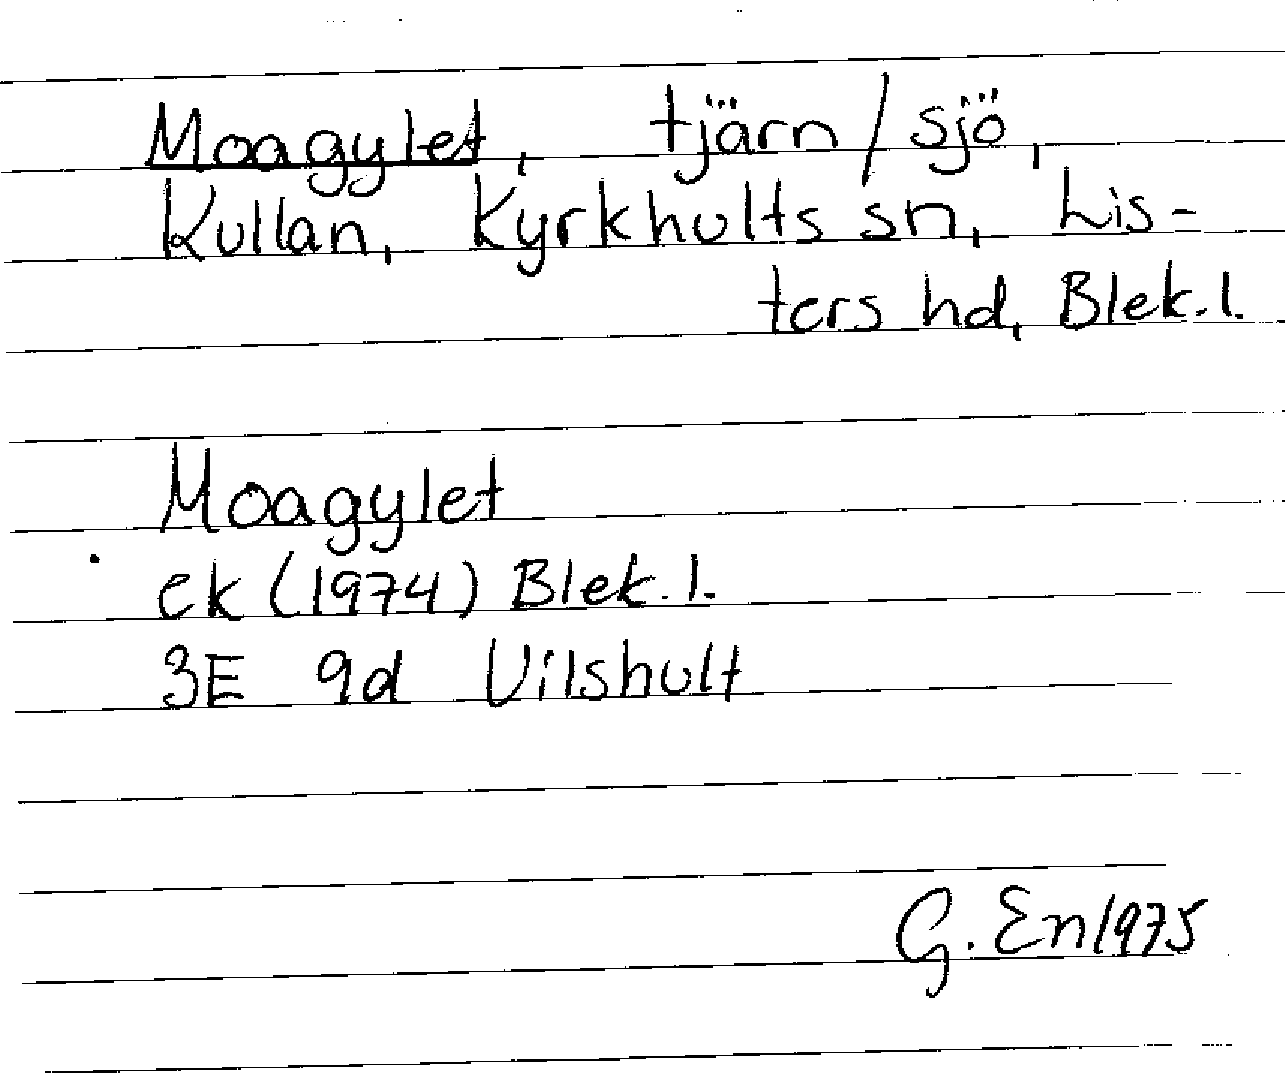 Moagylet, tjärn / sjö,
Kullan, Kyrkhults sn, Lis-
ters hd, Blek. l.
Moagylet
ek (1974) Blek. l.
3E 9d Vilshult
G. En 1975